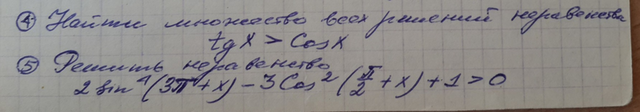 ④ Найти множество всех решений неравенства
tgx > Cosx
⑤ Решить неравенство
2 sin⁴(3π+x) - 3Cos²(π/2+x)+1>0